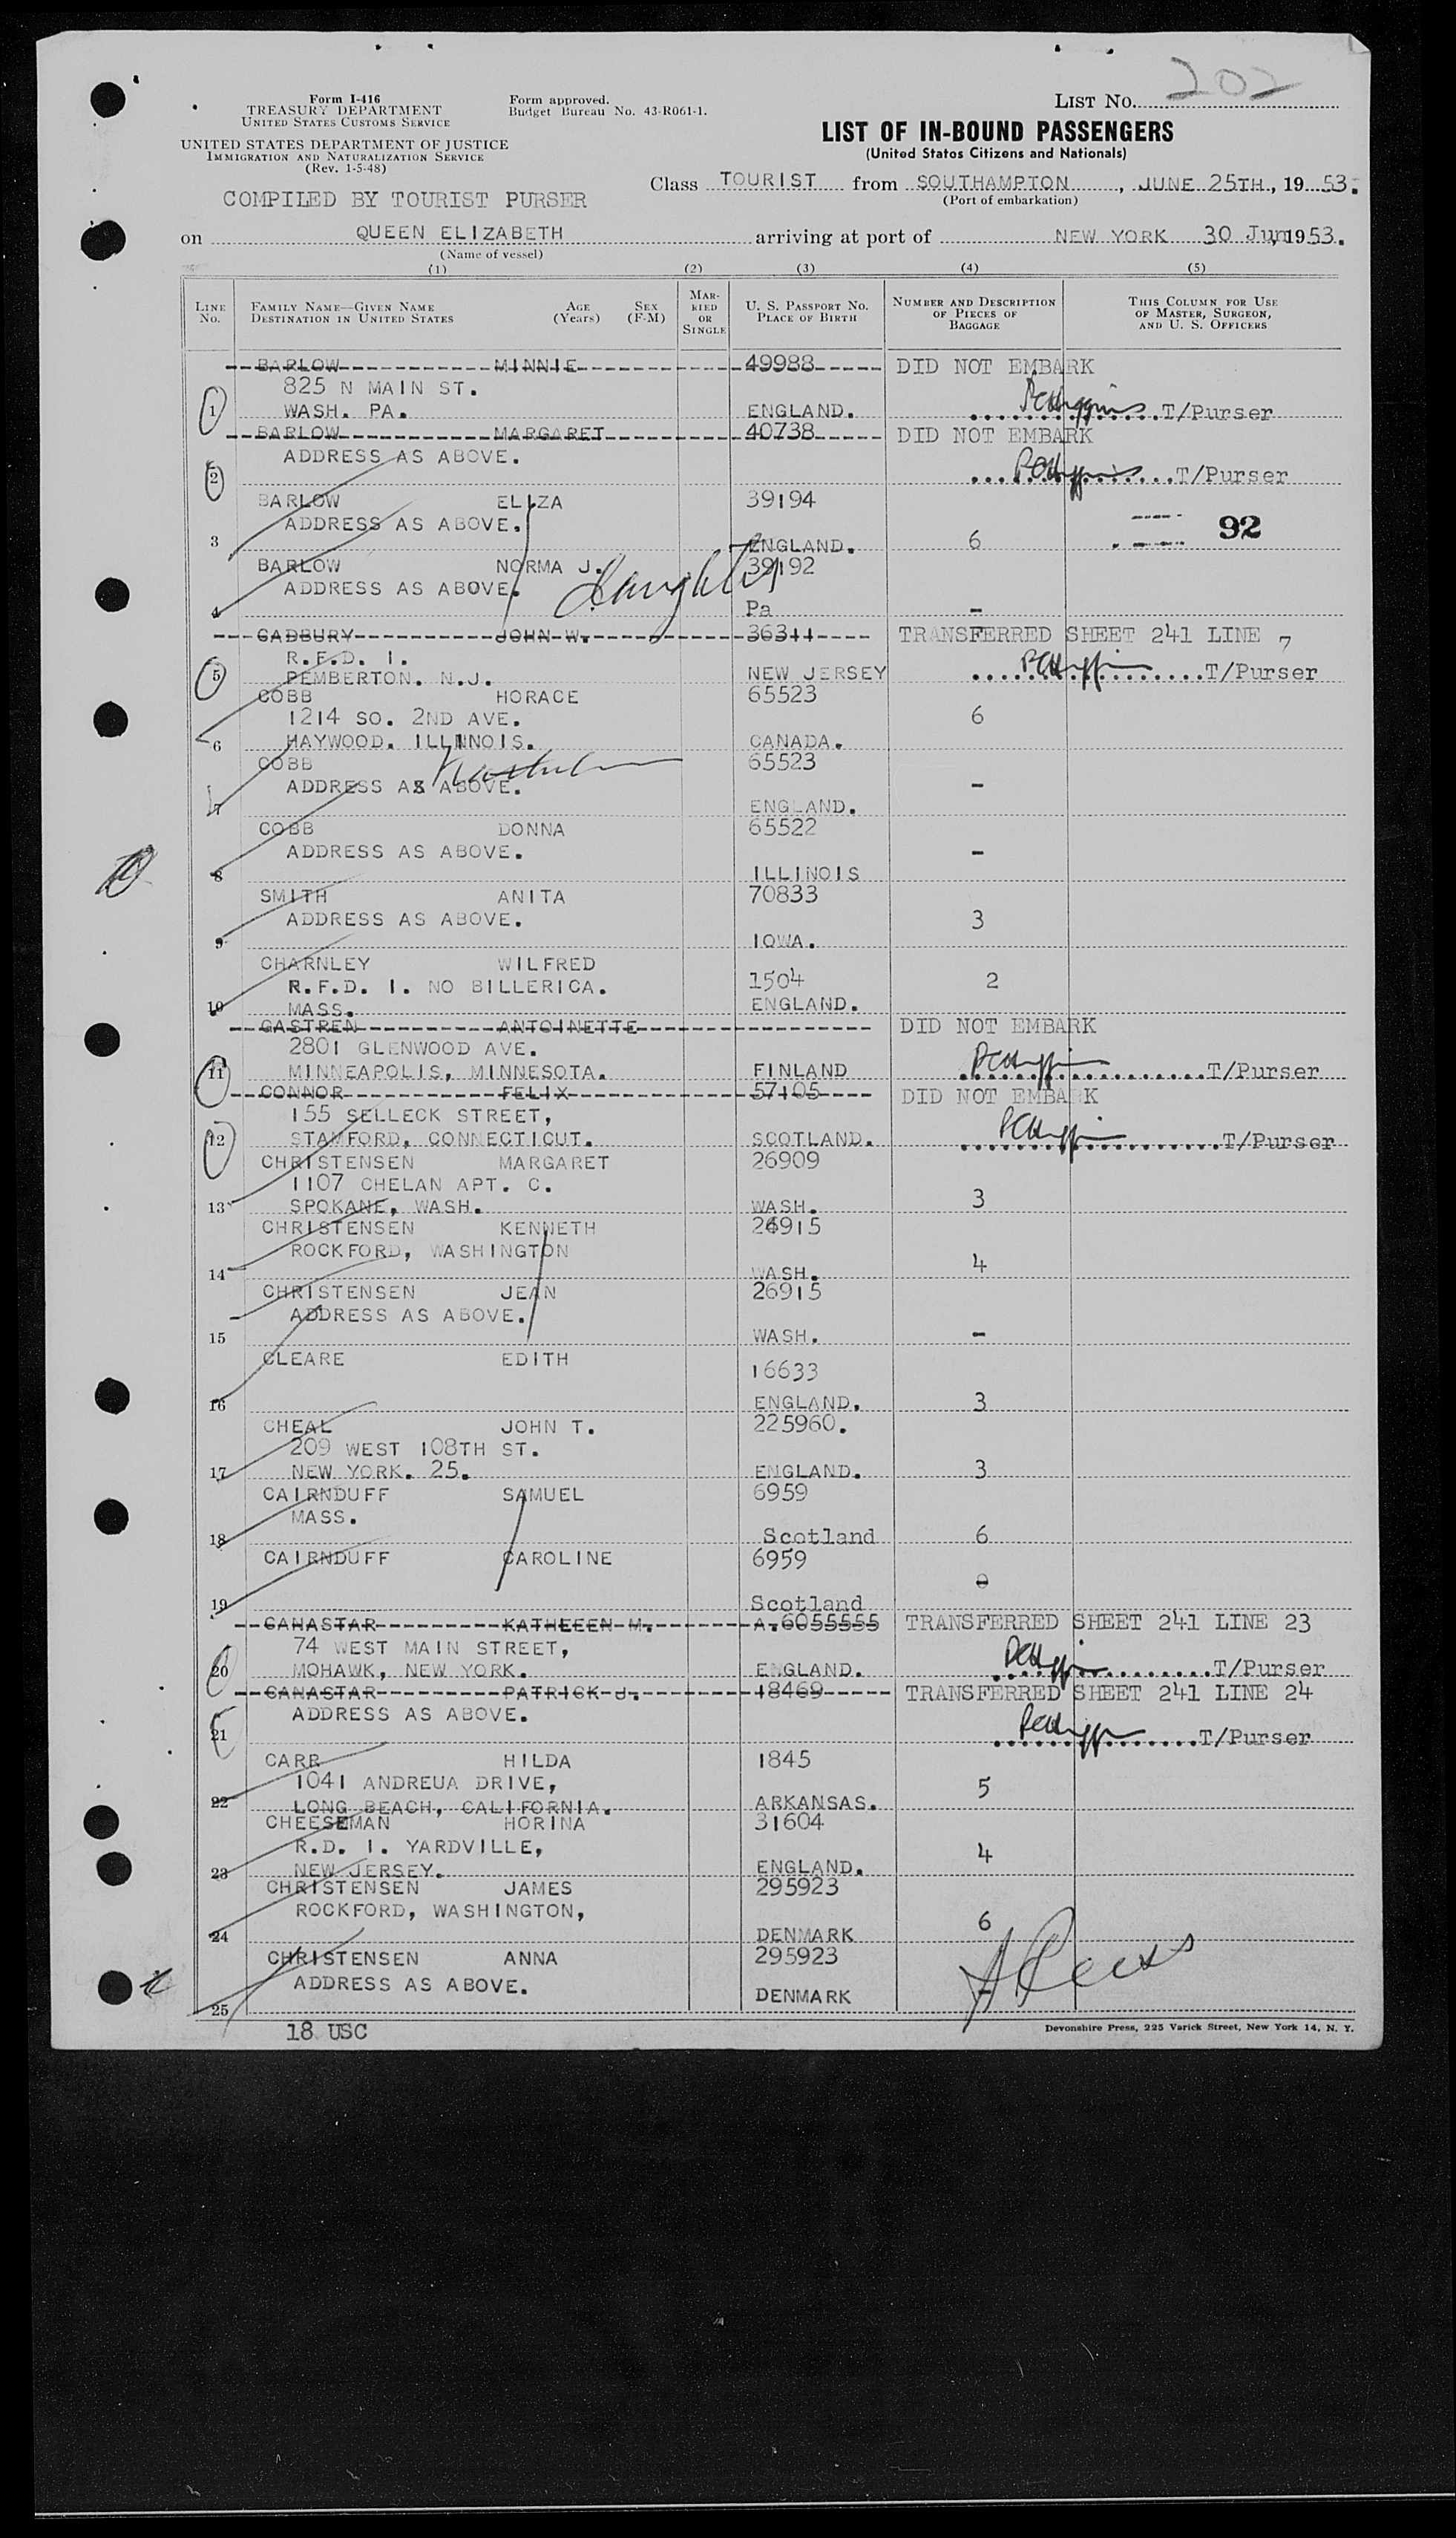 202
Form I-416
TREASURY DEPARTMENT
UNITED STATES CUSTOMS SERVICE
UNITED STATES DEPARTMENT OF JUSTICE
IMMIGRATION AND NATURALIZATION SERVICE
(Rev. 1-5-48)
Form approved.
Budget Bureau No. 43-R061-1.
LIST NO.
LIST OF IN-BOUND PASSENGERS
(United States Citizens and Nationals)
Class TOURIST from SOUTHAMPTON, JUNE 25TH., 19 53.
(Port of embarkation)
COMPILED BY TOURIST PURSER
on QUEEN ELIZABETH arriving at port of NEW YORK 30 Jun, 1953.
(Name of vessel)
(1) (2) (3) (4) (5)
LINE NO. FAMILY NAME—GIVEN NAME DESTINATION IN UNITED STATES AGE (Years) SEX (F-M) MARRIED OR SINGLE U. S. PASSPORT NO. PLACE OF BIRTH NUMBER AND DESCRIPTION OF PIECES OF BAGGAGE THIS COLUMN FOR USE OF MASTER, SURGEON, AND U. S. OFFICERS
BARLOW MINNIE 49988 DID NOT EMBARK
825 N MAIN ST.
1 WASH. PA. ENGLAND. T/Purser
BARLOW MARGARET 40738 DID NOT EMBARK
ADDRESS AS ABOVE.
2 T/Purser
BARLOW ELIZA 39194
ADDRESS AS ABOVE. 92
3 ENGLAND. 6
BARLOW NORMA J. 39192
ADDRESS AS ABOVE. daughter
4 Pa -
CADBURY JOHN W. 36311 TRANSFERRED SHEET 241 LINE 7
R.F.D. 1.
5 PEMBERTON. N.J. NEW JERSEY T/Purser
COBB HORACE 65523
1214 SO. 2ND AVE. 6
6 HAYWOOD. ILLINOIS. CANADA.
COBB 65523
ADDRESS AS ABOVE. -
7 ENGLAND.
COBB DONNA 65522
ADDRESS AS ABOVE. -
8 ILLINOIS
SMITH ANITA 70833
ADDRESS AS ABOVE. 3
9 IOWA.
CHARNLEY WILFRED
R.F.D. 1. NO BILLERICA. 1504 2
10 MASS. ENGLAND.
CASTREN ANTOINETTE DID NOT EMBARK
2801 GLENWOOD AVE.
11 MINNEAPOLIS, MINNESOTA. FINLAND T/Purser
CONNOR FELIX 57105 DID NOT EMBARK
155 SELLECK STREET,
12 STAMFORD, CONNECTICUT. SCOTLAND. T/Purser
CHRISTENSEN MARGARET 26909
1107 CHELAN APT. C.
13 SPOKANE, WASH. WASH. 3
CHRISTENSEN KENNETH 26915
ROCKFORD, WASHINGTON
14 WASH. 4
CHRISTENSEN JEAN 26915
ADDRESS AS ABOVE.
15 WASH. -
CLEARE EDITH 16633
16 ENGLAND. 3
CHEAL JOHN T. 225960.
209 WEST 108TH ST.
17 NEW YORK. 25. ENGLAND. 3
CAIRNDUFF SAMUEL 6959
MASS.
18 Scotland 6
CAIRNDUFF CAROLINE 6959
19 Scotland
CANASTAR KATHEEEN M. A.6055555 TRANSFERRED SHEET 241 LINE 23
74 WEST MAIN STREET,
20 MOHAWK, NEW YORK. ENGLAND. T/Purser
CANASTAR PATRICK J. 18469 TRANSFERRED SHEET 241 LINE 24
ADDRESS AS ABOVE.
21 T/Purser
CARR HILDA 1845
1041 ANDREUA DRIVE, 5
22 LONG BEACH, CALIFORNIA. ARKANSAS.
CHEESEMAN HORINA 31604
R.D. 1. YARDVILLE, 4
23 NEW JERSEY. ENGLAND.
CHRISTENSEN JAMES 295923
ROCKFORD, WASHINGTON, 6
24 DENMARK
CHRISTENSEN ANNA 295923
ADDRESS AS ABOVE. DENMARK -
25
18 USC
Devonshire Press, 225 Varick Street, New York 14, N. Y.